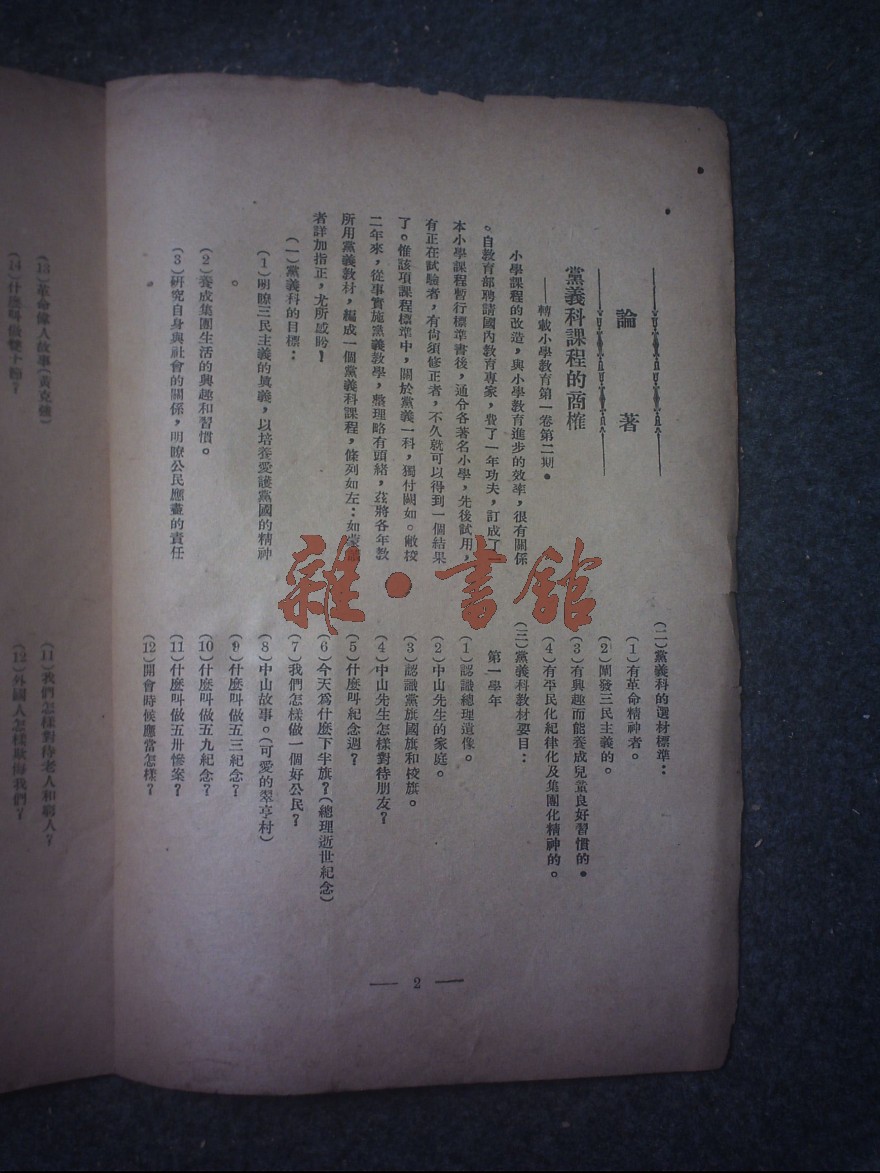 論著
黨義科課程的商榷
——轉載小學教育第一卷第二期。
小學課程的改造，與小學教育進步的效率，很有關係
。自教育部聘請國內教育專家，費了一年功夫，訂成了
本小學課程暫行標準書後，通令各著名小學，先後試用，
有正在試驗者，有尙須修正者，不久就可以得到一個結果
了。惟該項課程標準中，關於黨義一科，獨付闕如。敝校
二年來，從事實施黨義教學，整理略有頭緒，茲將各年敎
所用黨義教材，編成一個黨義科課程，條列如左：如
者詳加指正，尤所感盼！
（一）黨義科的目標：
（1）明瞭三民主義的眞義，以培養愛護黨國的精神
（2）養成集團生活的興趣和習慣。
（3）研究自身與社會的關係，明瞭公民應盡的責任
（二）黨義科的選材標準：
（1）有革命精神者。
（2）闡發三民主義的。
（3）有興趣而能養成兒童良好習慣的。
（4）有平民化紀律化及集團化精神的。
（三）黨義科教材要目：
第一學年
（1）認識總理遺像。
（2）中山先生的家庭。
（3）認識黨旗國旗和校旗。
（4）中山先生怎樣對待朋友？
（5）什麼叫紀念週？
（6）今天爲什麼下半旗？（總理逝世紀念）
（7）我們怎樣做一個好公民？
（8）中山故事。（可愛的翠亨村）
（9）什麼叫做五三紀念？
（10）什麼叫做五九紀念？
（11）什麼叫做五卅慘案？
（12）開會時候應當怎樣？
— 2 —
（13）革命偉人故事（黃克強）
（14）什麼叫做雙十節？
（11）我們怎樣對待老人和窮人？
（12）外國人怎樣欺侮我們？
雜·書館